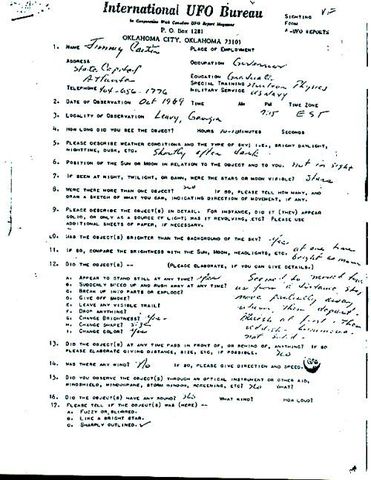 International UFO Bureau
SIGHTING
V-2
In Cooperation With Combined UFO Report Magazine
FROM
P. O. Box 1281
OKLAHOMA CITY, OKLAHOMA 73101
UFO REPORTS
1. NAME Jimmy Carter PLACE OF EMPLOYMENT
ADDRESS State Capitol Atlanta
OCCUPATION Governor
EDUCATION Graduate
SPECIAL TRAINING Nuclear Physics
TELEPHONE 404-656-1776
MILITARY SERVICE US Navy
2. DATE OF OBSERVATION Oct 1969 TIME AM PM TIME ZONE
7:15 EST
3. LOCALITY OF OBSERVATION Leary, Georgia
4. HOW LONG DID YOU SEE THE OBJECT? HOURS 10-12 MINUTES SECONDS
5. PLEASE DESCRIBE WEATHER CONDITIONS AND THE TYPE OF SKY; I.E., BRIGHT DAYLIGHT,
NIGHTTIME, DUSK, ETC. Shortly after dark
6. POSITION OF THE SUN OR MOON IN RELATION TO THE OBJECT AND TO YOU. not in sight
7. IF SEEN AT NIGHT, TWILIGHT, OR DAWN, WERE THE STARS OR MOON VISIBLE? Stars
8. WERE THERE MORE THAN ONE OBJECT? no IF SO, PLEASE TELL HOW MANY, AND
DRAW A SKETCH OF WHAT YOU SAW, INDICATING DIRECTION OF MOVEMENT, IF ANY.
9. PLEASE DESCRIBE THE OBJECT(S) IN DETAIL. FOR INSTANCE, DID IT (THEY) APPEAR
SOLID, OR ONLY AS A SOURCE OF LIGHT; WAS IT REVOLVING, ETC? PLEASE USE
ADDITIONAL SHEETS OF PAPER, IF NECESSARY.
10. WAS THE OBJECT(S) BRIGHTER THAN THE BACKGROUND OF THE SKY? yes
11. IF SO, COMPARE THE BRIGHTNESS WITH THE SUN, MOON, HEADLIGHTS, ETC. at one time bright as moon
12. DID THE OBJECT(S) — (PLEASE ELABORATE, IF YOU CAN GIVE DETAILS.)
A. APPEAR TO STAND STILL AT ANY TIME? yes
B. SUDDENLY SPEED UP AND RUSH AWAY AT ANY TIME?
C. BREAK UP INTO PARTS OR EXPLODE?
D. GIVE OFF SMOKE?
E. LEAVE ANY VISIBLE TRAIL?
F. DROP ANYTHING?
G. CHANGE BRIGHTNESS? yes
H. CHANGE SHAPE? size
I. CHANGE COLOR? yes
Seemed to move toward
us from a distance, stop,
move partially away
return, then depart.
Bluish at first - then
reddish - luminous
not solid
13. DID THE OBJECT(S) AT ANY TIME PASS IN FRONT OF, OR BEHIND OF, ANYTHING? IF SO
PLEASE ELABORATE GIVING DISTANCE, SIZE, ETC, IF POSSIBLE. no
14. WAS THERE ANY WIND? No IF SO, PLEASE GIVE DIRECTION AND SPEED.
15. DID YOU OBSERVE THE OBJECT(S) THROUGH AN OPTICAL INSTRUMENT OR OTHER AID,
WINDSHIELD, WINDOWPANE, STORM WINDOW, SCREENING, ETC? no WHAT?
16. DID THE OBJECT(S) HAVE ANY SOUND? no WHAT KIND? HOW LOUD?
17. PLEASE TELL IF THE OBJECT(S) WAS (WERE) —
A. FUZZY OR BLURRED.
B. LIKE A BRIGHT STAR.
C. SHARPLY OUTLINED. ✓